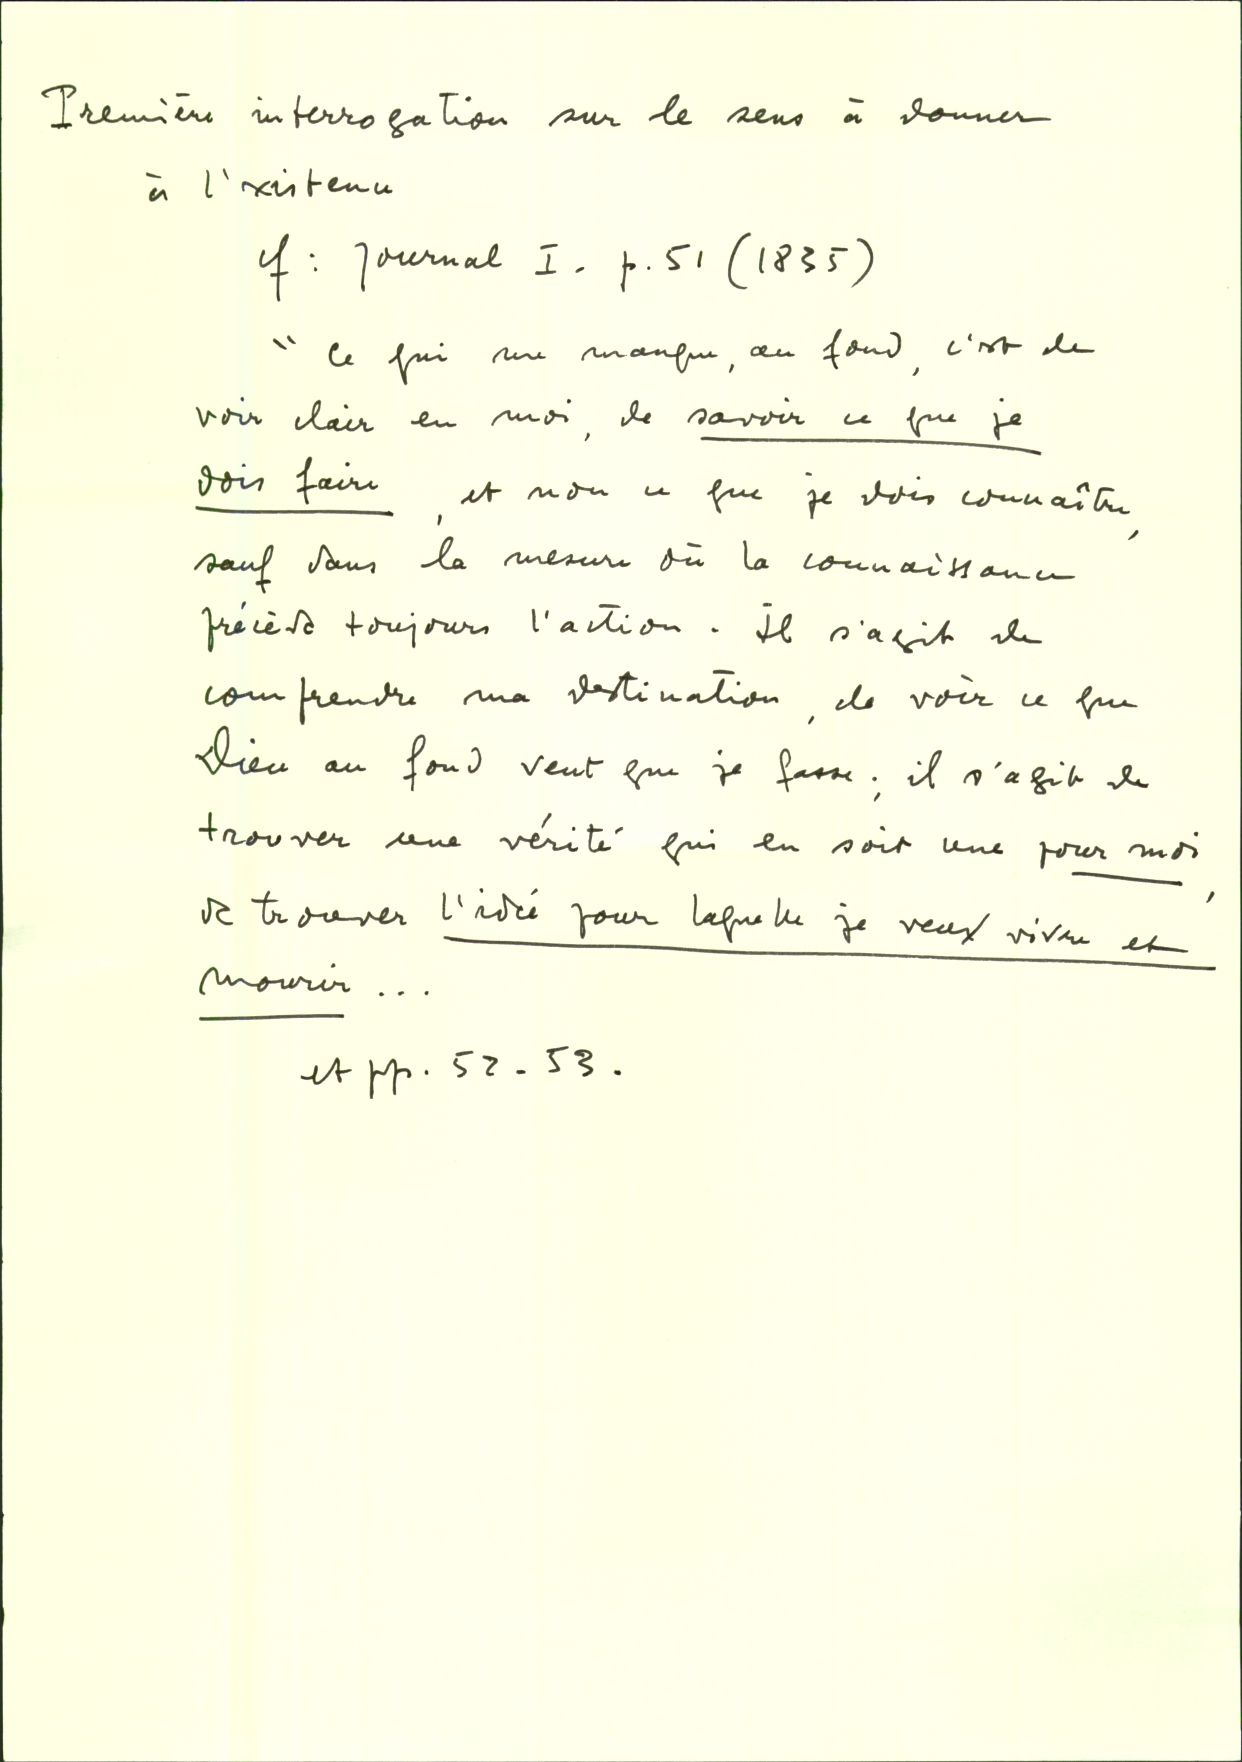 Première interrogation sur le sens à donner
à l'existence
cf : Journal I. p. 51 (1835)
" Ce qui me manque, au fond, c'est de
voir clair en moi, de savoir ce que je
dois faire, et non ce que je dois connaître,
sauf dans la mesure où la connaissance
précède toujours l'action. Il s'agit de
comprendre ma destination, de voir ce que
Dieu au fond veut que je fasse ; il s'agit de
trouver une vérité qui en soit une pour moi,
de trouver l'idée pour laquelle je veux vivre et
mourir ...
et pp. 52-53.